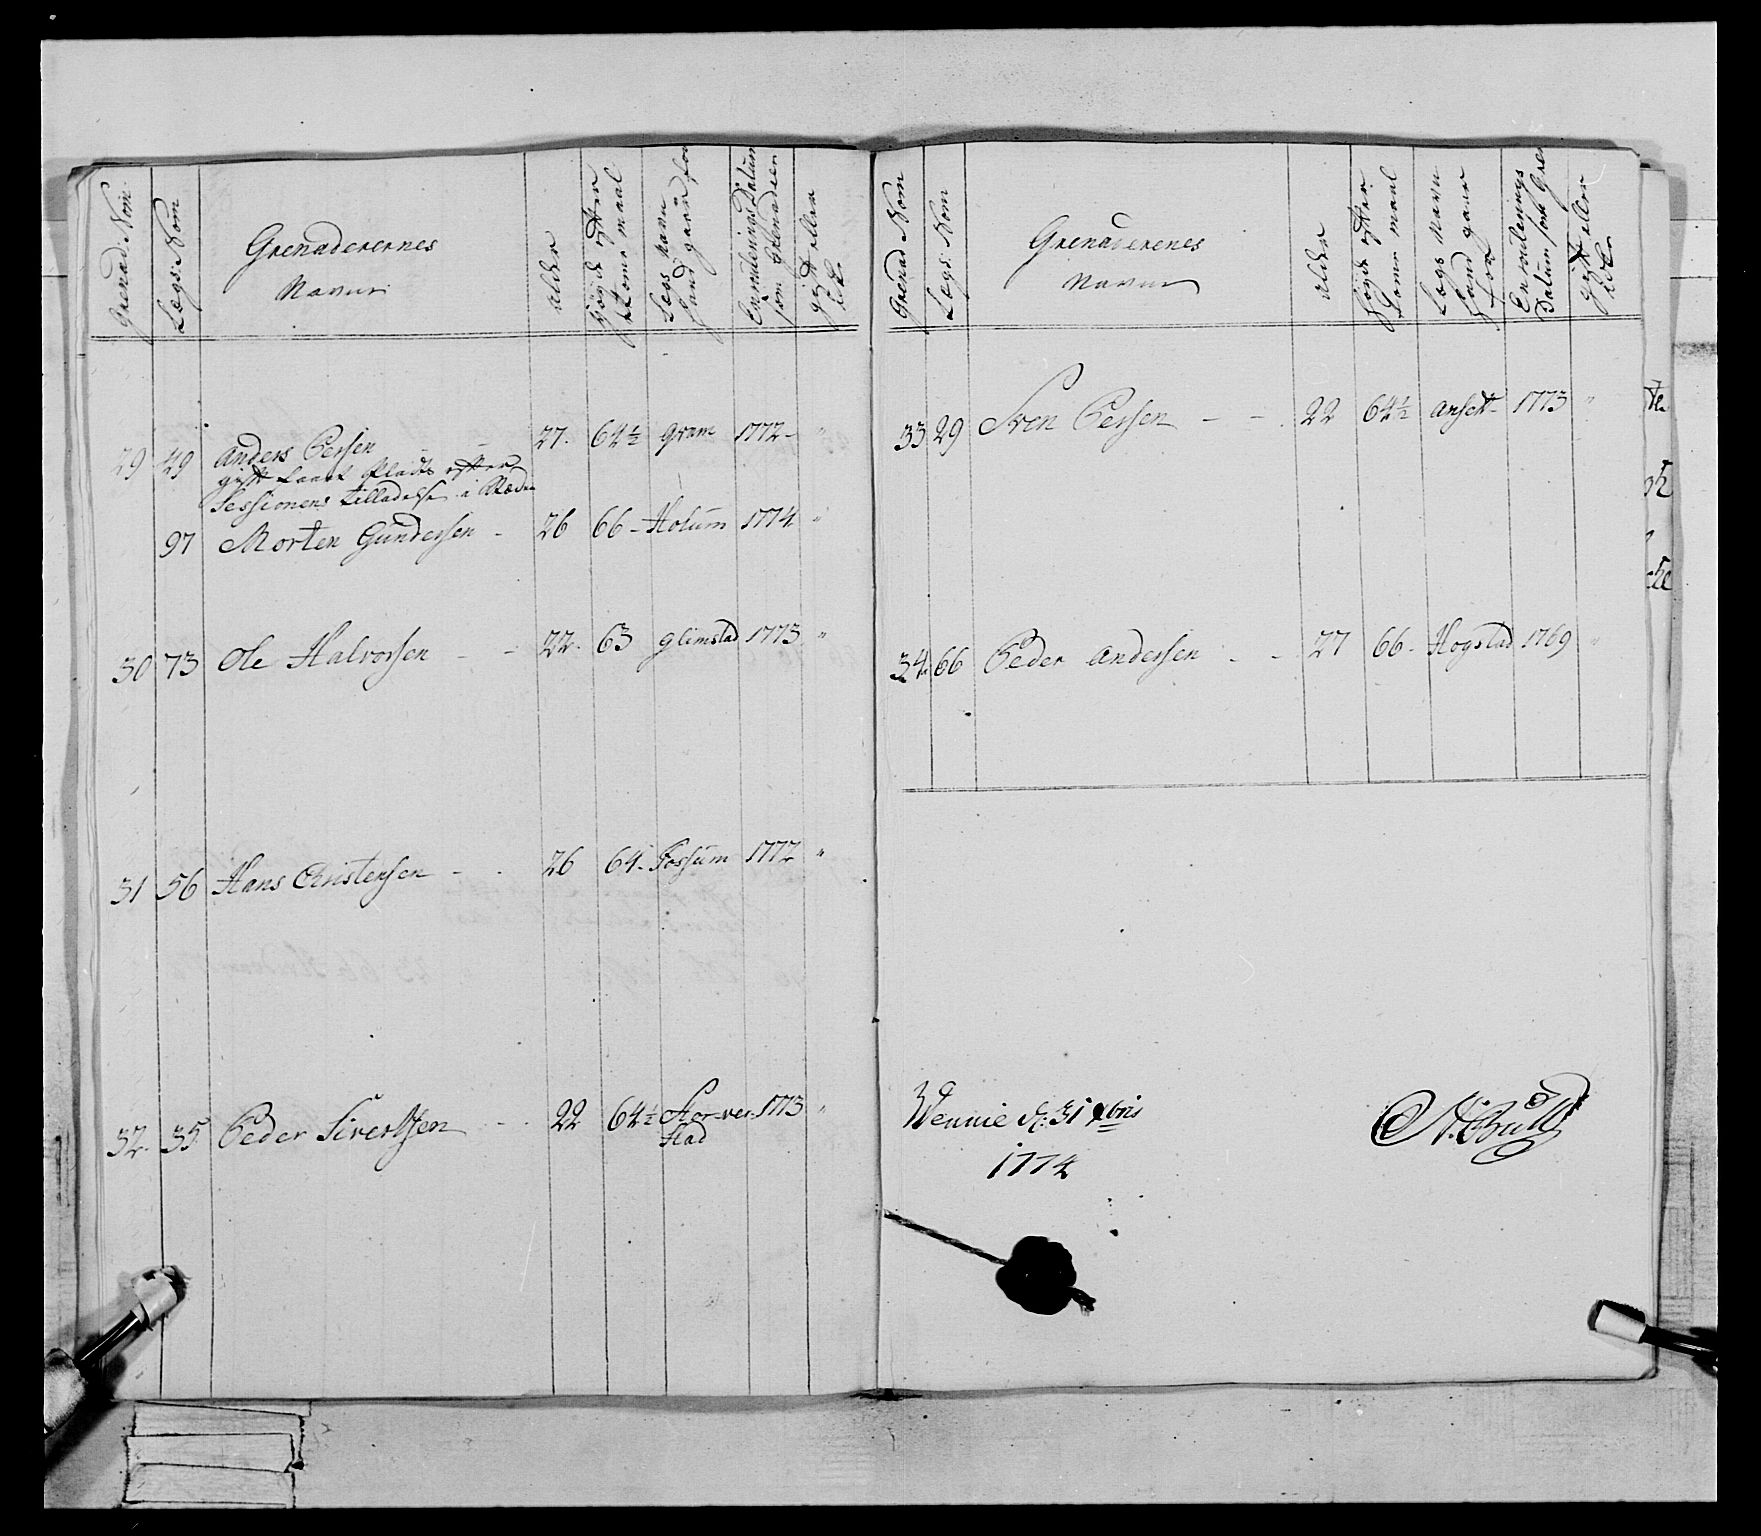 Grenad: Nom
Lægs: Nom
Grenaderernes
Navne
alder
Høyde efter
Lome maal
Legs Navn
Hand gaar for
Enroulenings Datum
som Grenadeer
gift eller
ikke
29 49 Anders Persen - 27. 64½ gram 1772 - "
gift taant Plads efter
Sessionens tilladelse i
97 Morten Gundersen - 26 66 - Holum 1774 "
30 73 Ole Halvorsen - - 22. 63 glimstad 1773 "
31 56 Hans Christensen - - 26 64 - Fossum 1772 "
32. 35 Peder Sivertsen - - 22 64½ Stor-ver- 1773 "
stad
Grenad Nom
Legs: Nom
Grenaderenes
Navne
alder
Høyde efter
Lome maal
Lægs Navn
Hand gaar
for
Enroulenings
Datum som Gre
gift eller
ikke
33 29 Sven Persen - - 22 64½ Ansett - 1773 "
34. 66 Peder Andersen - - 27 66 - Hogstad 1769 "
Wennie d: 31 xbris
1774
N. Bull